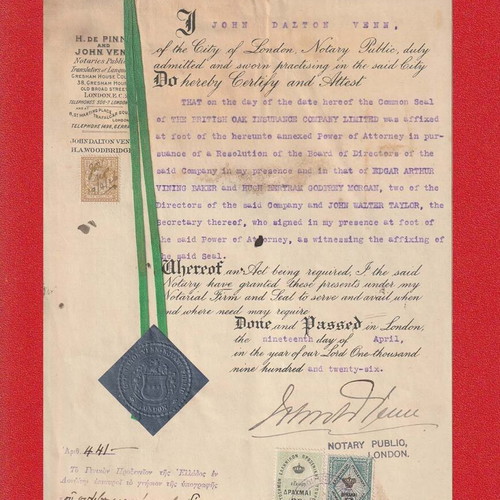 I JOHN DALTON VENN,
of the City of London, Notary Public, duly
admitted and sworn practising in the said City
Do hereby Certify and Attest
H. DE PINN
AND
JOHN VENN
Notaries Public
Translators of Langua
GRESHAM HOUSE
OLD BROAD STREET
LONDON, E.C.
JOHN DALTON VENN
H.A. WOODBRIDGE
THAT on the day of the date hereof the Common Seal
of THE BRITISH OAK INSURANCE COMPANY LIMITED was affixed
at foot of the hereunto annexed Power of Attorney in pur-
suance of a Resolution of the Board of Directors of the
said Company in my presence and in that of EDGAR ARTHUR
VINING BAKER and HUGH BERTRAM GODFREY MORGAN, two of the
Directors of the said Company and JOHN WALTER TAYLOR, the
Secretary thereof, who signed in my presence at foot of
the said Power of Attorney, as witnessing the affixing of
the said Seal.
Whereof an Act being required, I the said
Notary have granted these presents under my
Notarial Firm and Seal to serve and avail when
and where need may require.
Done and Passed in London,
the nineteenth day of April,
in the year of our Lord One thousand
nine hundred and twenty-six.
NOTARY PUBLIC,
LONDON.
LONDON
Ἀριθ. 441-
Τὸ Γενικὸν Προξενεῖον τῆς Ἑλλάδος ἐν
ΔΡΑΧΜΑΙ